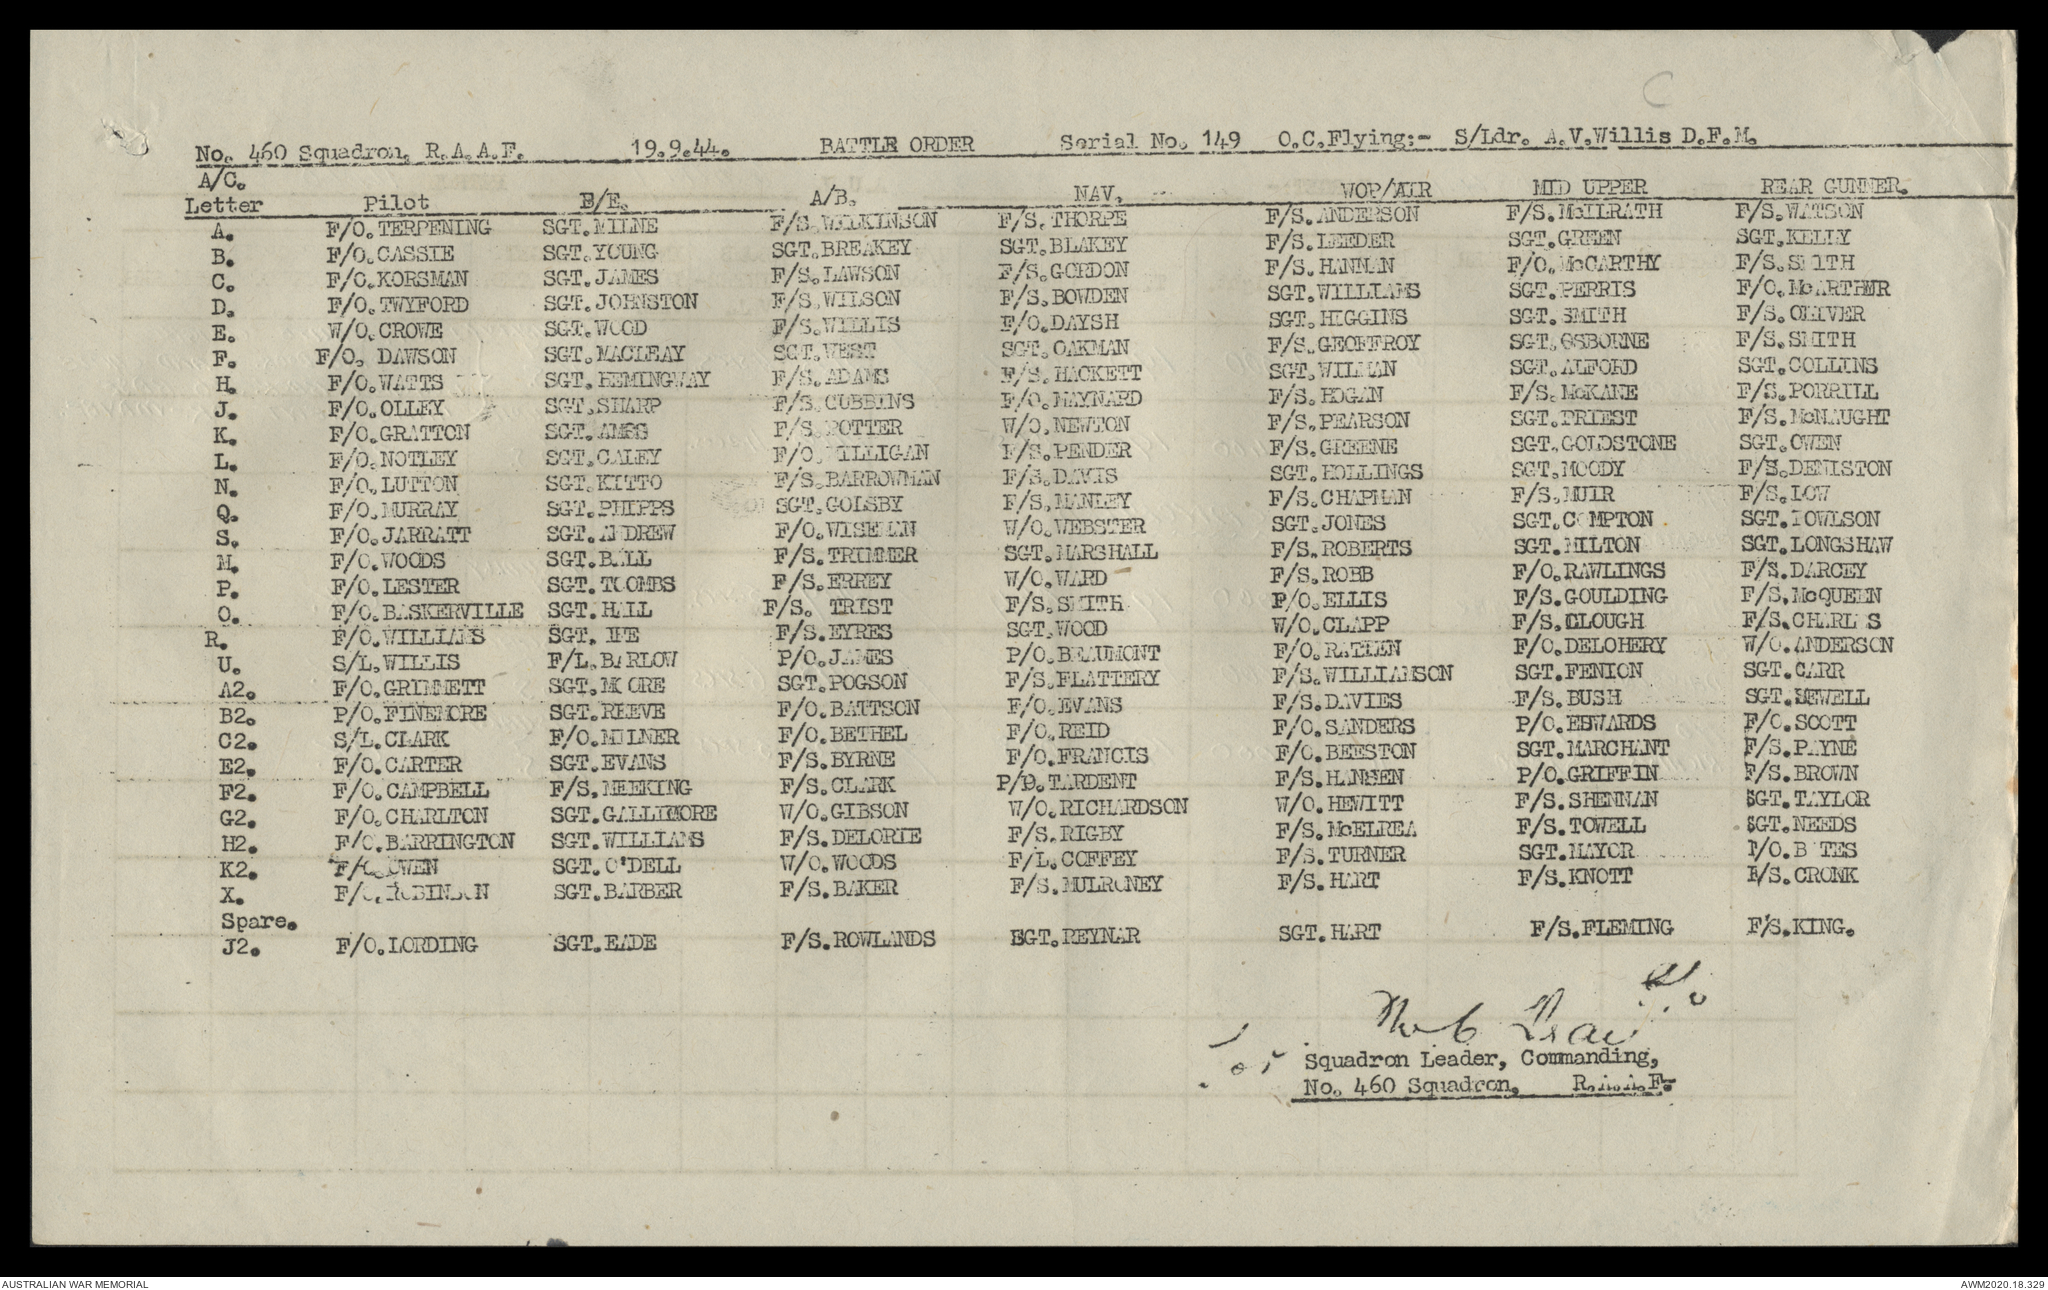 C
No. 460 Squadron. R.A.A.F. 19.9.44. BATTLE ORDER Serial No. 149 O.C.Flying:- S/Ldr. A.V.Willis D.F.M.
A/C.
Letter Pilot B/E. A/B. NAV. WOP/AIR MID UPPER REAR GUNNER.
A. F/O.TERPENING SGT.MILNE F/S.WILKINSON F/S.THORPE F/S.ANDERSON F/S.McILRATH F/S.WATSON
B. F/O.CASSIE SGT.YOUNG SGT.BREAKEY SGT.BLAKEY F/S.LEEDER SGT.GREEN SGT.KELLY
C. F/O.KORSMAN SGT.JAMES F/S.LAWSON F/S.GORDON F/S.HANNAN F/O.McCARTHY F/S.SMITH
D. F/O.TWYFORD SGT.JOHNSTON F/S.WILSON F/S.BOWDEN SGT.WILLIAMS SGT.PERRIS F/O.McARTHUR
E. W/O.CROWE SGT.WOOD F/S.WILLIS F/O.DAYSH SGT.HIGGINS SGT.SMITH F/S.OLIVER
F. F/O. DAWSON SGT.MACLEAY SGT.WEST SGT.OAKMAN F/S.GEOFFROY SGT.OSBORNE F/S.SMITH
H. F/O.WATTS SGT.HEMINGWAY F/S.ADAMS F/S.HACKETT SGT.WILMAN SGT.ALFORD SGT.COLLINS
J. F/O.OLLEY SGT.SHARP F/S.CUBBINS F/O.MAYNARD F/S.HOGAN F/S.McKANE F/S.PORRILL
K. F/O.GRATTON SGT.AMES F/S.POTTER W/O.NEWTON F/S.PEARSON SGT.PRIEST F/S.McNAUGHT
L. F/O.NOTLEY SGT.CALEY F/O.MILLIGAN F/S.PENDER F/S.GREENE SGT.GOLDSTONE SGT.OWEN
N. F/O.LUTTON SGT.KITTO F/S.BARROWMAN F/S.DAVIS SGT.HOLLINGS SGT.MOODY F/S.DENISTON
Q. F/O.MURRAY SGT.PHIPPS SGT.GOLSBY F/S.MANLEY F/S.CHAPMAN F/S.MUIR F/S.LOW
S. F/O.JARRATT SGT.ANDREW F/O.WISEMAN W/O.WEBSTER SGT.JONES SGT.COMPTON SGT.TOWLSON
M. F/O.WOODS SGT.BALL F/S.TRIMMER SGT.MARSHALL F/S.ROBERTS SGT.MILTON SGT.LONGSHAW
P. F/O.LESTER SGT.TOOMBS F/S.ERREY W/O.WARD F/S.ROBB F/O.RAWLINGS F/S.DARCEY
O. F/O.BASKERVILLE SGT.HALL F/S. TRIST F/S.SMITH P/O.ELLIS F/S.GOULDING F/S.McQUEEN
R. F/O.WILLIAMS SGT. IFE F/S.EYRES SGT.WOOD W/O.CLAPP F/S.CLOUGH F/S.CHARLES
U. S/L.WILLIS F/L.BARLOW P/O.JAMES P/O.BEAUMONT F/O.RATTEN F/O.DELOHERY W/O.ANDERSON
A2. F/O.GRIMMETT SGT.MOORE SGT.POGSON F/S.FLATTERY F/S.WILLIAMSON SGT.FENION SGT.CARR
B2. P/O.FINEMORE SGT.REEVE F/O.BATTSON F/O.EVANS F/S.DAVIES F/S.BUSH SGT.SEWELL
C2. S/L.CLARK F/O.MILNER F/O.BETHEL F/O.REID F/O.SANDERS P/O.EDWARDS F/O.SCOTT
E2. F/O.CARTER SGT.EVANS F/S.BYRNE F/O.FRANCIS F/O.BEESTON SGT.MARCHANT F/S.PAYNE
F2. F/O.CAMPBELL F/S.MEEKING F/S.CLARK P/O.TARDENT F/S.HANSEN P/O.GRIFFIN F/S.BROWN
G2. F/O.CHARLTON SGT.GALLIMORE W/O.GIBSON W/O.RICHARDSON W/O.HEWITT F/S.SHENNAN SGT.TAYLOR
H2. F/O.BARRINGTON SGT.WILLIAMS F/S.DELORIE F/S.RIGBY F/S.McELREA F/S.TOWELL SGT.NEEDS
K2. F/O.OWEN SGT.O'DELL W/O.WOODS F/L.COFFEY F/S.TURNER SGT.MAYOR F/O.BATES
X. F/O.ROBINSON SGT.BARBER F/S.BAKER F/S.MULRONEY F/S.HART F/S.KNOTT F/S.CRONK
Spare.
J2. F/O.LORDING SGT.EADE F/S.ROWLANDS SGT.REYNAR SGT.HART F/S.FLEMING F/S.KING.
for
Squadron Leader, Commanding,
No. 460 Squadron, R.A.A.F.
AUSTRALIAN WAR MEMORIAL AWM2020.18.329